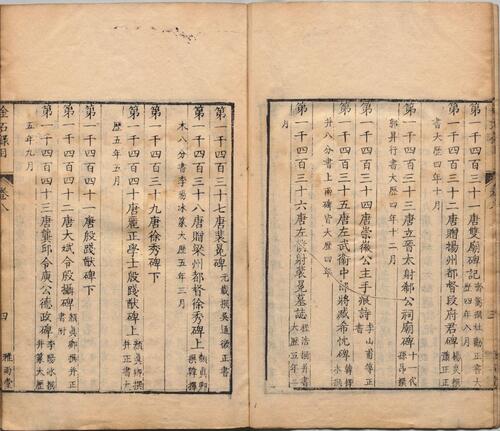 第一千四百三十一唐雙廟碑記齊嵩撰杜勸正書大歷四年八月
第一千四百三十二唐贈揚州都督段府君碑楊炎撰蕭正正
書大歷四年十月
第一千四百三十三唐立晉太尉郗公祠廟碑十一代孫昂撰
郗昇行書大歷四年十二月
第一千四百三十四唐崇徽公主手痕詩李山甫等正
第一千四百三十五唐左武衛中郎將臧希忱碑韓擇木撰
并八分書上兩碑皆大歷四年
第一千四百三十六唐左僕射裴冕墓誌程浩撰并書大歷五年三
月
第一千四百三十七唐裴冕碑元載撰吳通微正書
第一千四百三十八唐贈梁州都督徐秀碑上顏真卿撰韓擇
木八分書李陽冰篆大歷五年三月
第一千四百三十九唐徐秀碑下
第一千四百四十唐麗正學士殷踐猷碑上顏真卿撰并正書大
歷五年五月
第一千四百四十一唐殷踐猷碑下
第一千四百四十二唐大斌令殷攝碑顏真卿撰并正書附
第一千四百四十三唐龔邱令庾公德政碑李陽冰撰并篆大歷
五年九月
金石錄目 卷八 四 雅雨堂